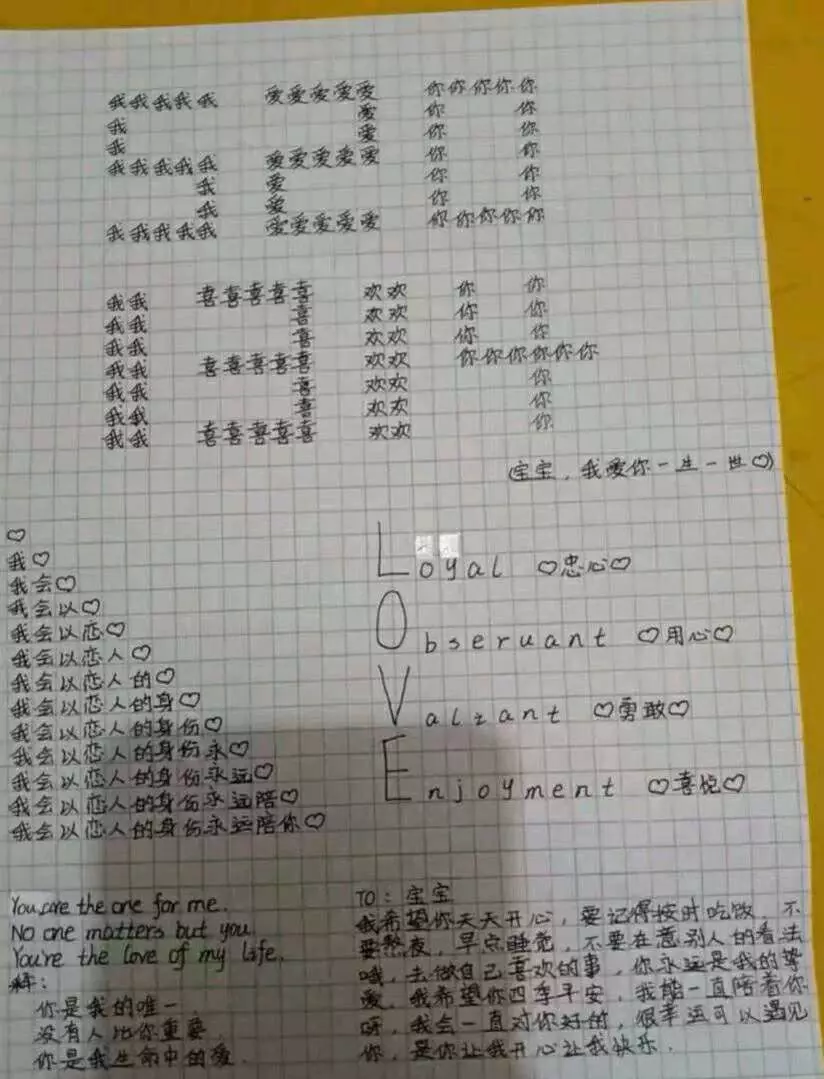 我我我我我 爱爱爱爱爱 你你你你你
我 爱 你 你
我 爱 你 你
我我我我我 爱爱爱爱爱 你 你
我 爱 你 你
我 爱 你 你
我我我我我 爱爱爱爱爱 你你你你你
我我 喜喜喜喜喜 欢欢 你 你
我我 喜 欢欢 你 你
我我 喜 欢欢 你 你
我我 喜喜喜喜喜 欢欢 你你你你你你
我我 喜 欢欢 你
我我 喜 欢欢 你
我我 喜喜喜喜喜 欢欢 你
(宝宝，我爱你一生一世♡)
♡
我♡
我会♡
我会以♡
我会以恋♡
我会以恋人♡
我会以恋人的♡
我会以恋人的身♡
我会以恋人的身份♡
我会以恋人的身份永♡
我会以恋人的身份永远♡
我会以恋人的身份永远陪♡
我会以恋人的身份永远陪你♡
Loyal ♡忠心♡
Obseruant ♡用心♡
Valzant ♡勇敢♡
Enjoyment ♡喜悦♡
You are the one for me.
No one matters but you.
You're the love of my life.
你是我的唯一
没有人比你重要
你是我生命中的爱.
TO：宝宝
我希望你天天开心，要记得按时吃饭，不
要熬夜，早点睡觉，不要在意别人的看法
哦，去做自己喜欢的事，你永远是我的挚
爱，我希望你四季平安，我能一直陪着你
呀，我会一直对你好的，很幸运可以遇见
你，是你让我开心让我快乐.